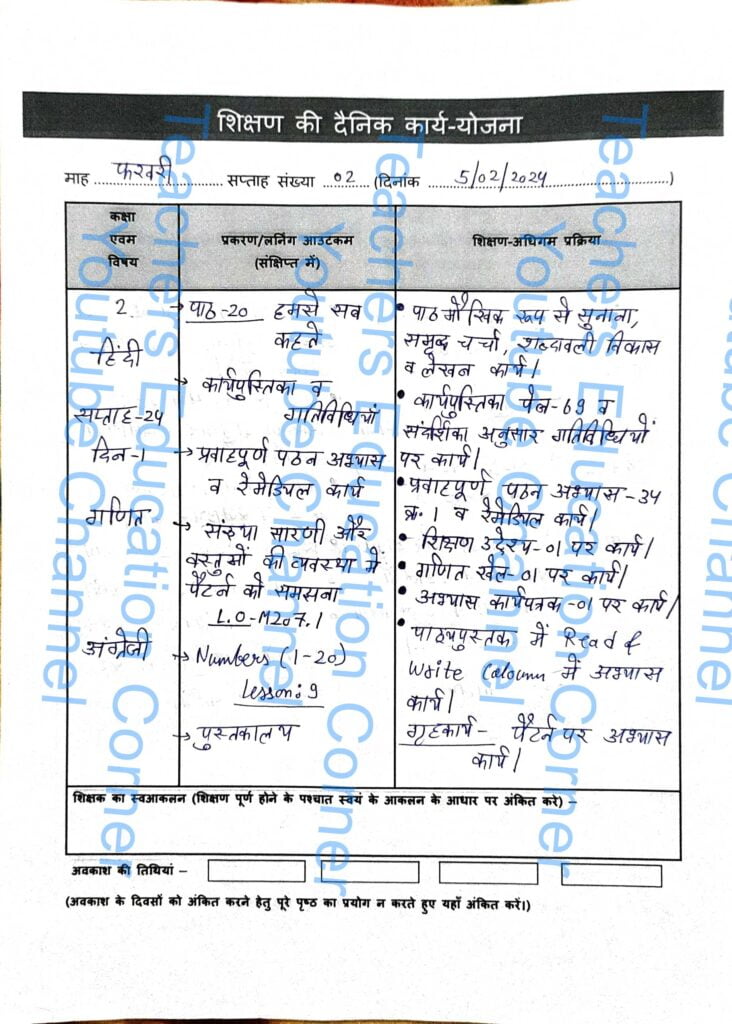 शिक्षण की दैनिक कार्य-योजना
माह फरवरी सप्ताह संख्या 02 (दिनांक 5/02/2024)
कक्षा
एवम
विषय
प्रकरण/लर्निंग आउटकम
(संक्षिप्त में)
शिक्षण-अधिगम प्रक्रिया
2
हिंदी
सप्ताह-24
दिन-1
गणित
अंग्रेजी
→ पाठ-20 हमसे सब
कहते
→ कार्यपुस्तिका व
गतिविधियां
→ प्रवाहपूर्ण पठन अभ्यास
व रेमेडियल कार्य
→ संख्या सारणी और
वस्तुओं की व्यवस्था में
पैटर्न को समझना
L.O-M207.1
→ Numbers (1-20)
Lesson: 9
→ पुस्तकालय
• पाठ मौखिक रूप से सुनाना,
समूह चर्चा, शब्दावली विकास
व लेखन कार्य।
• कार्यपुस्तिका पेज-69 व
संदर्शिका अनुसार गतिविधियों
पर कार्य।
• प्रवाहपूर्ण पठन अभ्यास-34
क्र. 1 व रेमेडियल कार्य।
• शिक्षण उद्देश्य-01 पर कार्य।
• गणित खेल-01 पर कार्य।
• अभ्यास कार्यपत्रक-01 पर कार्य।
• पाठ्यपुस्तक में Read &
Write Coloumn में अभ्यास
कार्य।
गृहकार्य- पैटर्न पर अभ्यास
कार्य।
शिक्षक का स्वआकलन (शिक्षण पूर्ण होने के पश्चात स्वयं के आकलन के आधार पर अंकित करे) –
अवकाश की तिथियां –
(अवकाश के दिवसों को अंकित करने हेतु पूरे पृष्ठ का प्रयोग न करते हुए यहाँ अंकित करें।)
Teachers Education Corner
Youtube Channel
Teachers Education Corner
Youtube Channel
Teachers Education Corner
Youtube Channel
Teachers Education Corner
Youtube Channel